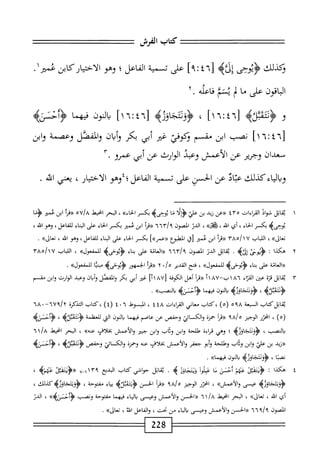 كتاب الفرش
وكذلك ﴿يُوحِى إِلَىَّ﴾ [٩:٤٦] على تسمية الفاعل ؛ وهو الاختيار كابن عُمير١.
الباقون على ما لم يُسَمَّ فاعلُه .٢
و ﴿نَتَقَبَّلُ﴾ [١٦:٤٦] ، ﴿وَنَتَجَاوَزُ﴾ [١٦:٤٦] بالنون فيهما ﴿أَحْسَنَ﴾
[١٦:٤٦] نصب ابن مقسم وكوفيّ غير أبي بكر وأبان والمفضّل وعصمة وابن
سعدان وجرير عن الأعمش وعبدُ الوارث عن أبي عمرو .٣
وبالياء كذلك عبّادٌ عن الحسن على تسمية الفاعل ؛٤وهو الاختيار ، يعني الله .
١ يُقابَل شواذّ القراءات ٤٣٥ «عن زيد بن عليّ ﴿إِلَّا مَا يُوحِى﴾ بكسر الحاء» ، البحر المحيط ٥٧/٨ «قرأ ابن عُمير ﴿مَا
يُوحِى﴾ بكسر الحاء ، أي الله ،» ، الدرّ المصون ٦٦٣/٩ «قرأ ابن عُمير بكسر الحاء على البناء للفاعل ، وهو الله ،
تعالى» ، اللباب ٣٨٥/١٧ «قرأ ابن عُمير [في المطبوع «نصر»] بكسر الحاء على البناء للفاعل ، وهو الله ، تعالى» .
٢ هكذا : ﴿يُوحَىٰ إِلَيَّ﴾ . يُقابَل الدرّ المصون ٦٦٣/٩ «العامّة على بناء ﴿يُوحَى﴾ للمفعول» ، اللباب ٣٨٥/١٧
«العامّة على بناء ﴿يُوحَى﴾ للمفعول» ، فتح القدير ٢٠/٥ «قرأ الجمهور ﴿يُوحَى﴾ مبنيًّا للمفعول» .
٣ يُقابَل قرّة عين القرّاء ١٨٦ب-١٨٧أ «قرأ أهل الكوفة [١٨٧أ] غير أبي بكر والمفضَّل وأبان وعبد الوارث وابن مقسم
﴿نَتَقَبَّلُ﴾ ، ﴿وَنَتَجَاوَزُ﴾ بالنون فيهما ﴿أَحْسَنَ﴾ بالنصب» .
يُقابَل كتاب السبعة ٥٩٨ (٥) ، كتاب معاني القراءات ٤٤٨ ، المبسوط ٤٠٦ (٤) ، كتاب التذكرة ٦٧٩/٢-٦٨٠
(٥) ، المحرّر الوجيز ٩٨/٥ «قرأ حمزة والكسائيّ وحفص عن عاصم فيهما بالنون التي للعظمة ﴿نَتَقَبَّلُ﴾ ، ﴿أَحْسَنَ﴾
بالنصب ، ﴿وَنَتَجَاوَزُ﴾ ؛ وهي قراءة طلحة وابن وثّاب وابن جبير والأعمش بخلاف عنه» ، البحر المحيط ٦١/٨
«زيد بن عليّ وابن وثّاب وطلحة وأبو جعفر والأعمش بخلاف عنه وحمزة والكسائيّ وحفص ﴿نَتَقَبَّلُ﴾ ، ﴿أَحْسَنَ﴾
نصبًا ، ﴿وَنَتَجَاوَزُ﴾ بالنون فيهما» .
٤ هكذا : ﴿يَتَقَبَّلُ عَنْهُمْ أَحْسَنَ مَا عَمِلُوا وَيَتَجَاوَزُ ﴾ . يُقابَل حواشي كتاب البديع ١٣٩ر «﴿يَتَقَبَّلُ عَنْهُمْ﴾ ،
﴿وَيَتَجَاوَزُ﴾ عيسى والأعمش» ، المحرّر الوجيز ٩٨/٥ «قرأ الحسن ﴿يَتَقَبَّلُ﴾ بياء مفتوحة ، ﴿وَيَتَجَاوَزُ﴾ كذلك ،
أي الله ، تعالى» ، البحر المحيط ٦١/٨ «الحسن والأعمش وعيسى بالياء فيهما مفتوحة ونصب ﴿أَحْسَنَ﴾» ، الدرّ
المصون ٦٦٩/٩ «الحسن والأعمش وعيسى بالياء من تحت ، والفاعل اللهُ ، تعالى» .
228